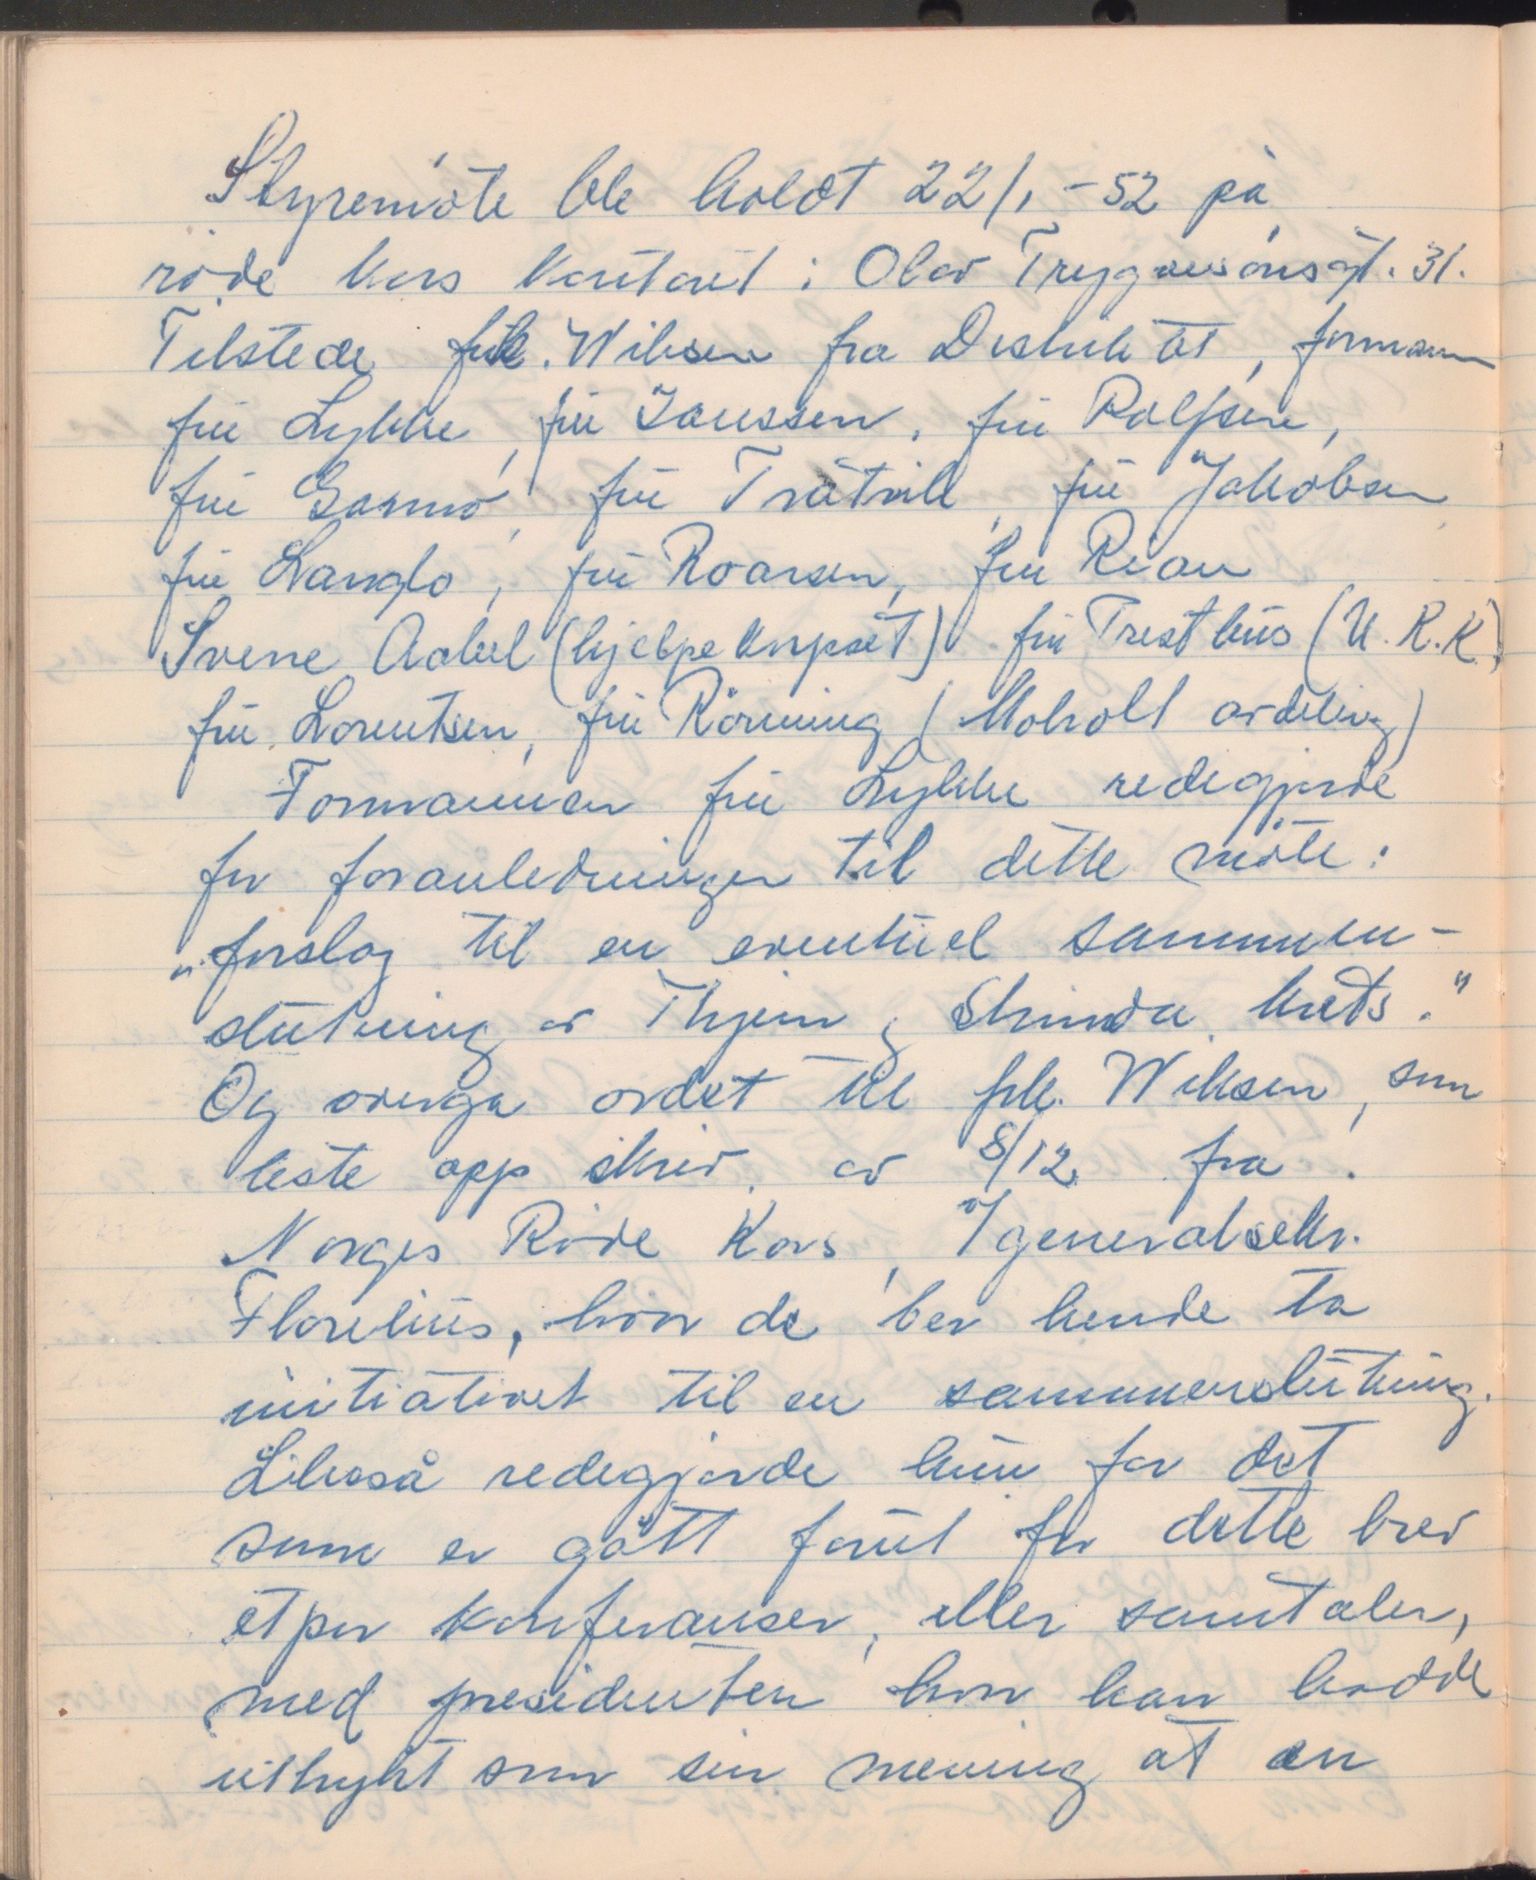 Styremöte ble holdt 22/1 -52 på
röde kors kontoret i Olav Trygvasonsgt. 31.
Tilstede frk. Wiksen fra Distriktet, formann
frú Lykke, frú Janssen, frú Rolfsen,
frú Garmo, frú Trätvik, frú Jakobsen,
frú Langlo, frú Roarsen, frú Rian
Svene (hjelpekorpset) frú Tresthús (U.R.K.)
frú Lorentsen, frú Rönning (Moholt avdeling)
Formannen frú Lykke redegjorde
for foranledningen til dette möte:
„forslag til en eventúel sammen-
slútning av Thjem og Strinda krets."
Og overga ordet til frk. Wiksen, som
leste opp skriv. av 8/12 fra
Norges Röde Kors, Generalsekr.
Florelius, hvor de ber hende ta
initiativet til en sammenslútning.
Likeså redegjorde hún for det
som er gått forút for dette brev
et par konferanser, eller samtaler,
med presidenten hvor han hadde
úttrykt som sin mening at en